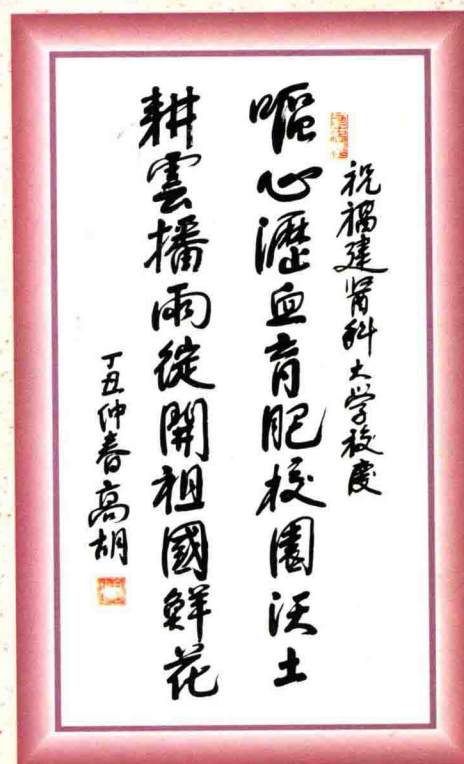 祝福建医科大学校慶
嘔心瀝血育肥校園沃土
耕雲播雨綻開祖國鮮花
丁丑仲春高胡